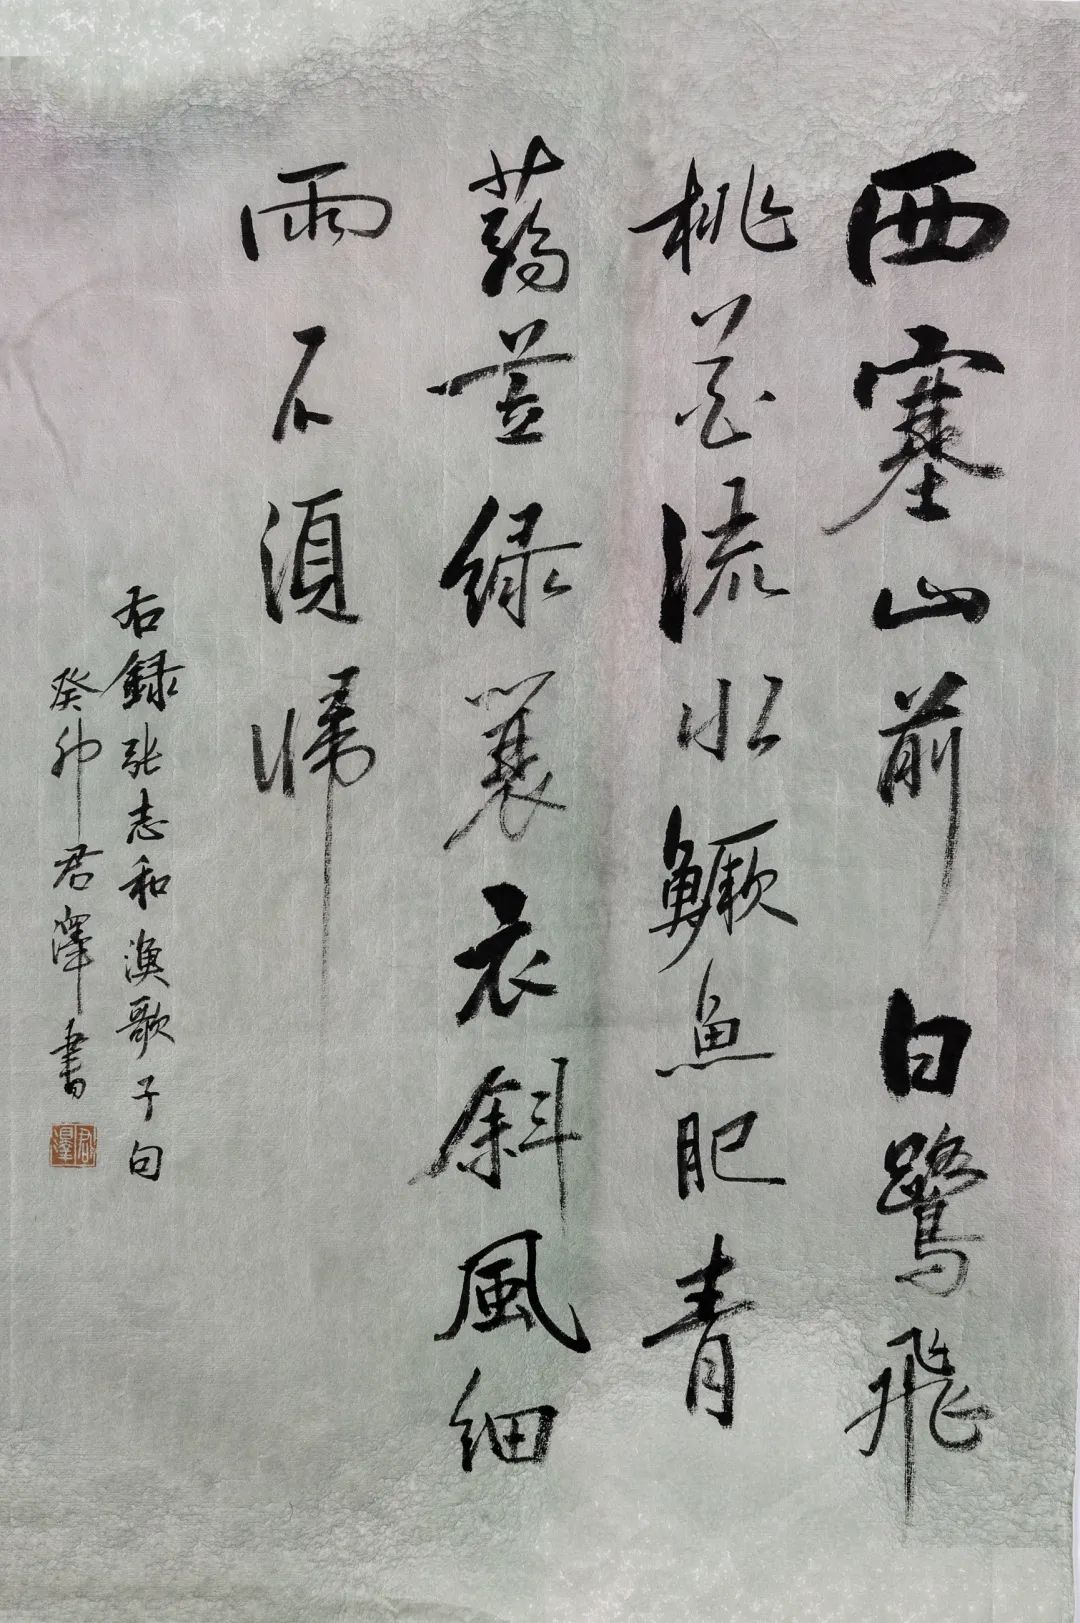 西塞山前白鷺飛
桃花流水鱖魚肥青
蒻笠緑蓑衣斜風細
雨不須歸
右録張志和漁歌子句
癸卯君澤書
君澤